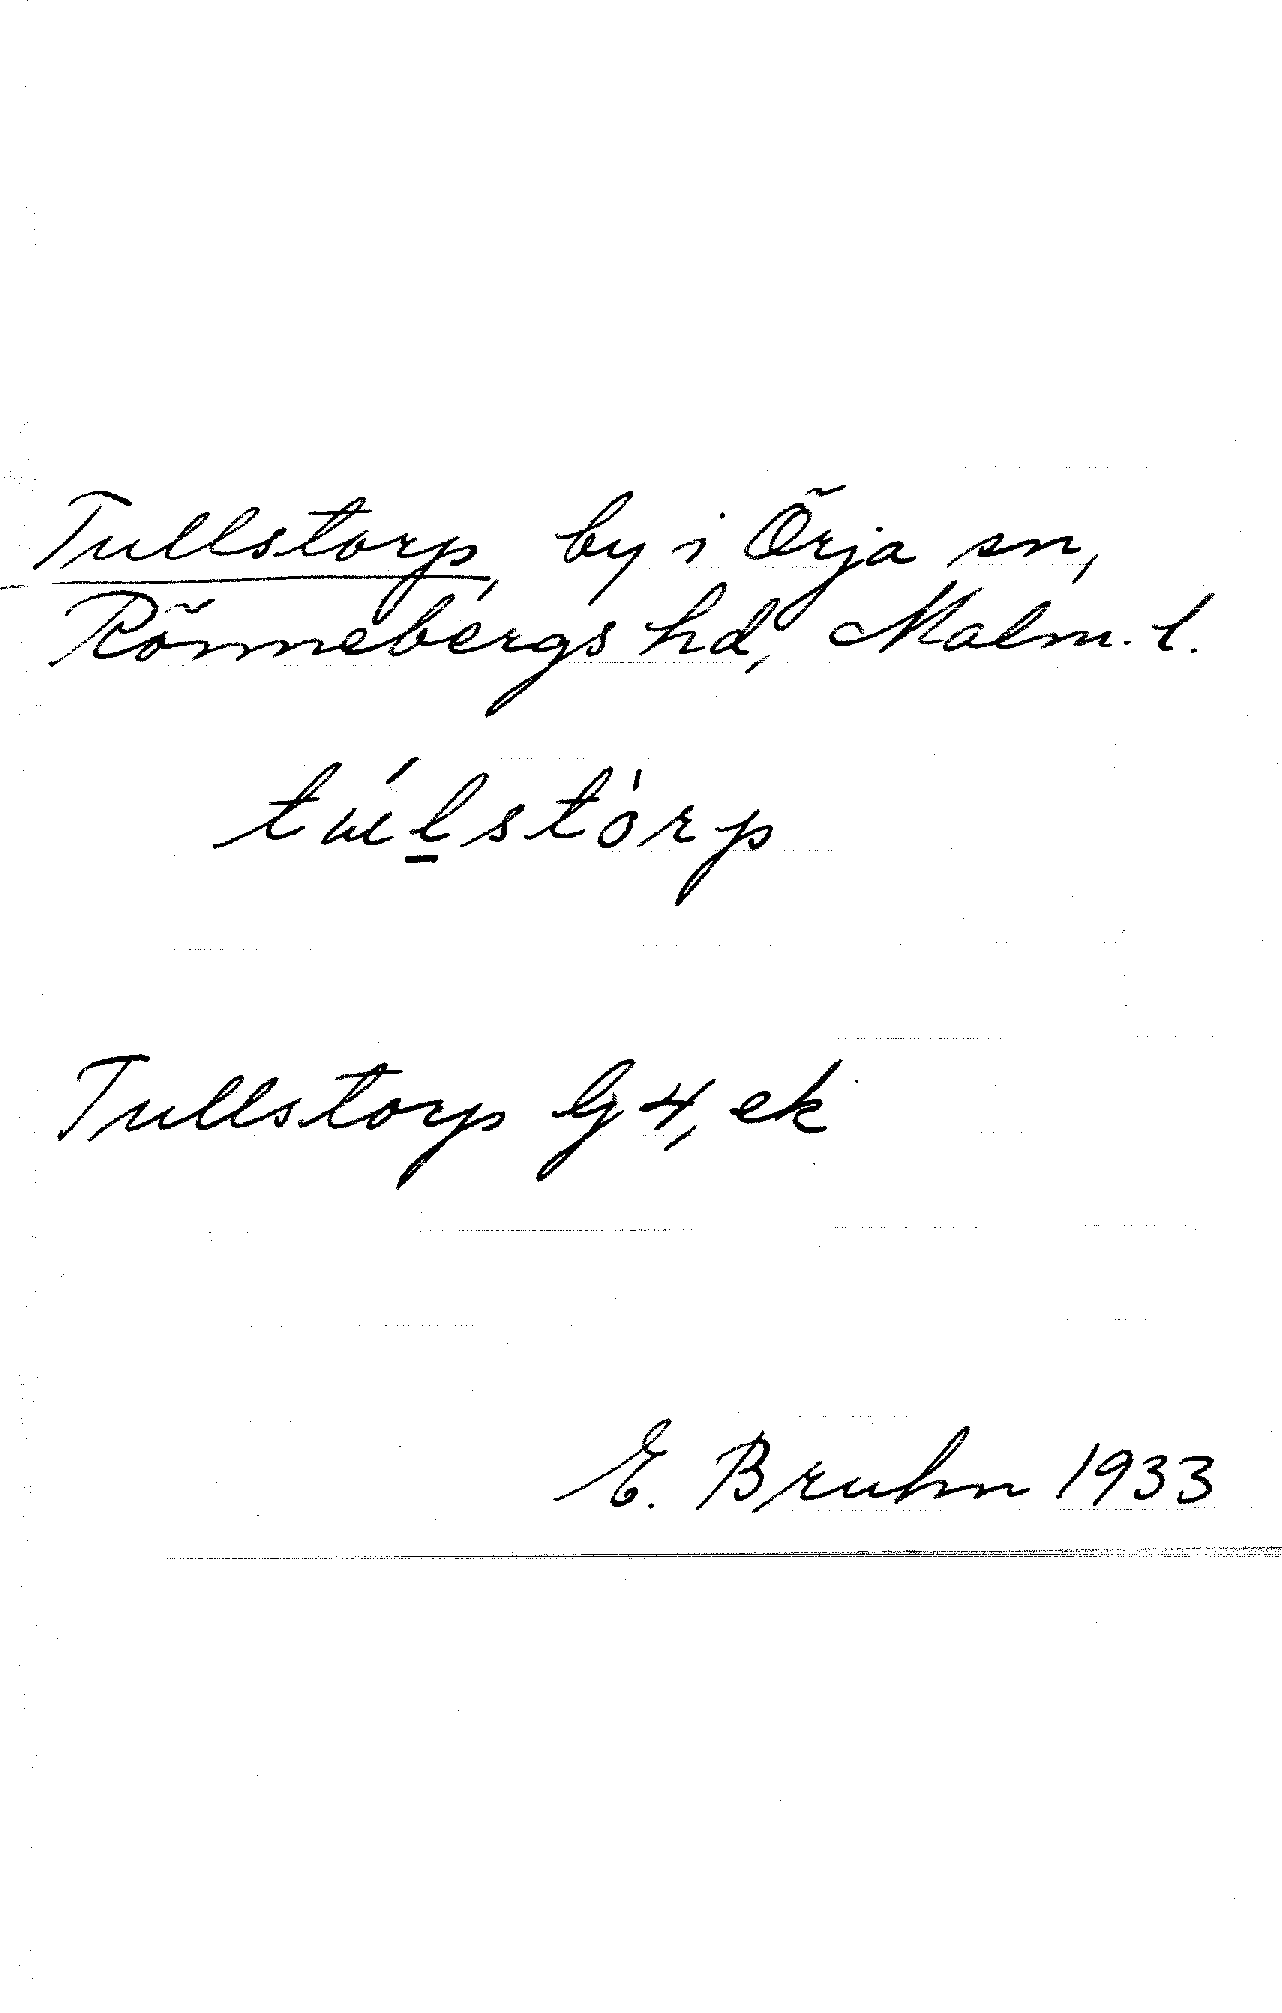 Tullstorp, by i Örja sn,
Rönnebergs hd, Malm. l.
túl̠stòrp
Tullstorp G4, ek
E. Bruhn 1933